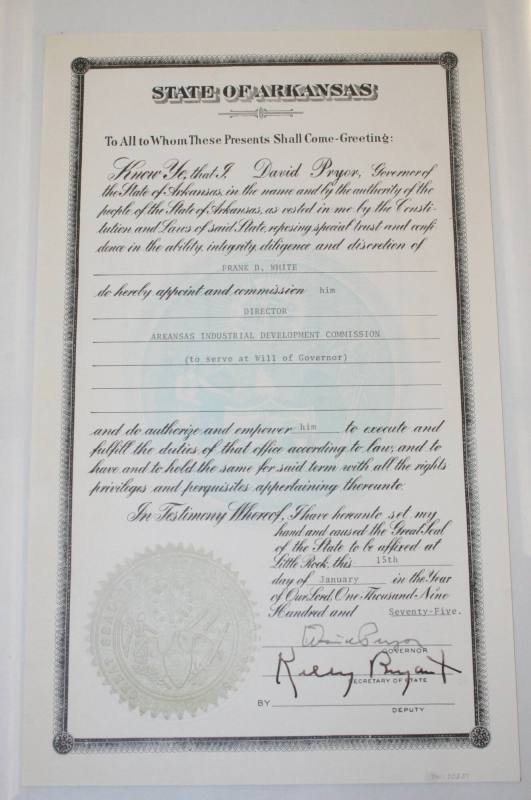 STATE OF ARKANSAS
To All to Whom These Presents Shall Come-Greeting:
Know Ye, that I, David Pryor, Governor of
the State of Arkansas, in the name and by the authority of the
people of the State of Arkansas, as vested in me by the Consti-
tution and Laws of said State, reposing special trust and confi-
dence in the ability, integrity, diligence and discretion of
FRANK D. WHITE
do hereby appoint and commission him
DIRECTOR
ARKANSAS INDUSTRIAL DEVELOPMENT COMMISSION
(to serve at Will of Governor)
and do authorize and empower him to execute and
fulfill the duties of that office according to law, and to
have and to hold the same for said term with all the rights
privileges and perquisites appertaining thereunto.
In Testimony Whereof, I have hereunto set my
hand and caused the Great Seal
of the State to be affixed at
Little Rock, this 15th
day of January in the Year
of Our Lord, One Thousand Nine
Hundred and Seventy-Five.
David Pryor
GOVERNOR
Kelly Bryant
SECRETARY OF STATE
BY
DEPUTY